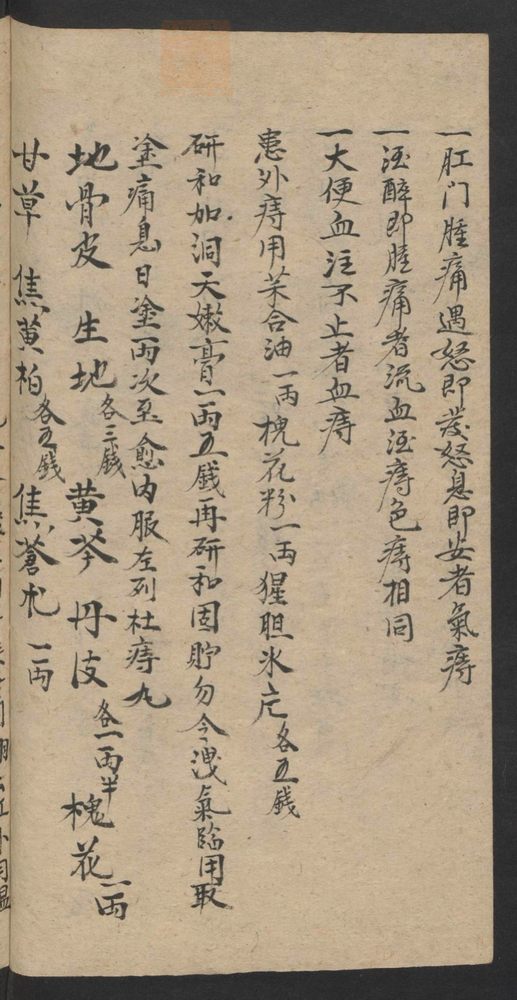 一肛门腫痛遇怒即發怒息即安者氣痔
一酒醉即腫痛者流血酒痔色痔相同
一大便血注不止者血痔
患外痔用茉合油一两槐花粉一两猩胆氷片各五錢
研和加洞天嫩膏一両五錢再研和固貯勿令洩氣臨用取
塗痛息日塗両次至愈内服左列杜痔丸
地骨皮 生地各三錢 黄芩 丹皮各一両半 槐花一両
甘草 焦黄柏各五錢 焦蒼朮一両